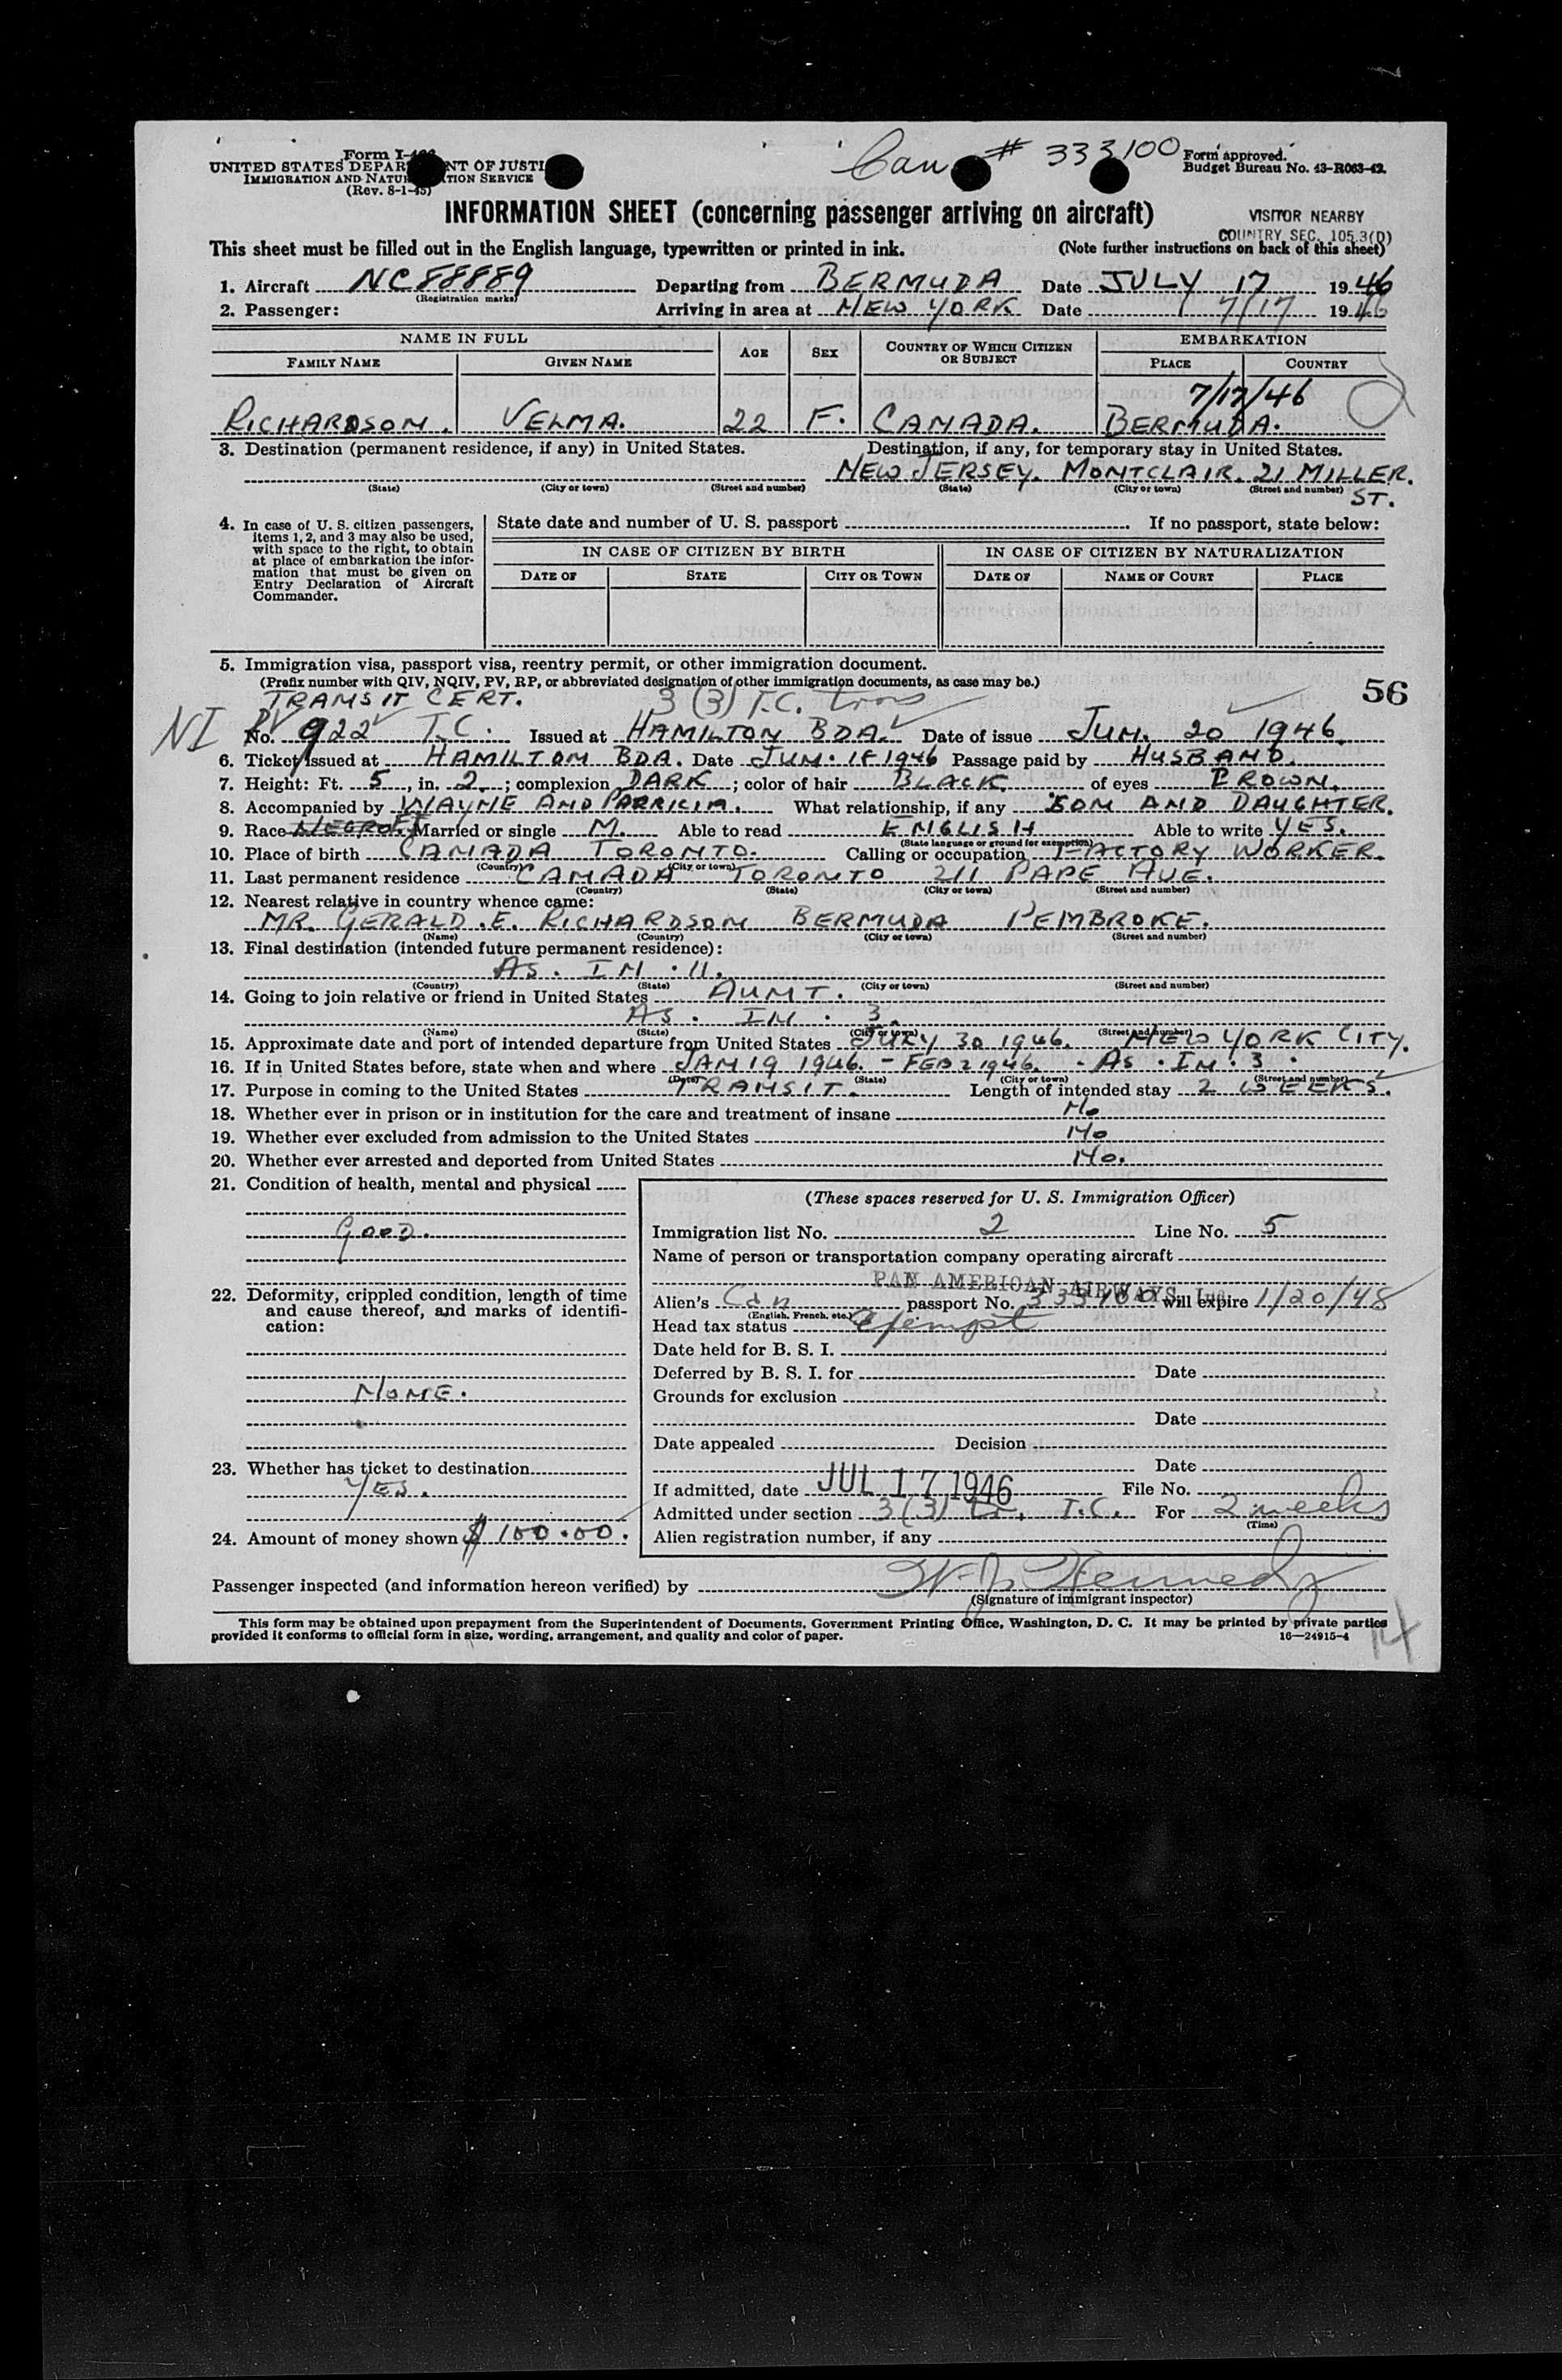 Can # 333100
Form I-
UNITED STATES DEPAR NT OF JUSTI
IMMIGRATION AND NATU TION SERVICE
(Rev. 8-1-45)
Form approved.
Budget Bureau No. 43-R063-42.
INFORMATION SHEET (concerning passenger arriving on aircraft)
VISITOR NEARBY
COUNTRY SEC. 105.3(D)
This sheet must be filled out in the English language, typewritten or printed in ink. (Note further instructions on back of this sheet)
1. Aircraft NC88889 Departing from BERMUDA Date JULY 17 1946
(Registration marks)
2. Passenger: Arriving in area at NEW YORK Date 7/17 1946
NAME IN FULL AGE SEX COUNTRY OF WHICH CITIZEN OR SUBJECT EMBARKATION
FAMILY NAME GIVEN NAME PLACE COUNTRY
7/17/46
RICHARDSON. VELMA. 22 F. CANADA. BERMUDA.
3. Destination (permanent residence, if any) in United States. Destination, if any, for temporary stay in United States.
NEW JERSEY. MONTCLAIR. 21 MILLER.
(State) (City or town) (Street and number) (State) (City or town) (Street and number) ST.
4. In case of U. S. citizen passengers, items 1, 2, and 3 may also be used, with space to the right, to obtain at place of embarkation the information that must be given on Entry Declaration of Aircraft Commander.
State date and number of U. S. passport If no passport, state below:
IN CASE OF CITIZEN BY BIRTH IN CASE OF CITIZEN BY NATURALIZATION
DATE OF STATE CITY OR TOWN DATE OF NAME OF COURT PLACE
5. Immigration visa, passport visa, reentry permit, or other immigration document.
(Prefix number with QIV, NQIV, PV, RP, or abbreviated designation of other immigration documents, as case may be.)
TRANSIT CERT. 3 (3) T.C. trans 56
NI PV No. 922 T.C. Issued at HAMILTON BDA. Date of issue JUN. 20 1946.
6. Ticket issued at HAMILTON BDA. Date JUN. 18 1946 Passage paid by HUSBAND.
7. Height: Ft. 5, in. 2; complexion DARK; color of hair BLACK. of eyes BROWN.
8. Accompanied by WAYNE AND PARRICIA. What relationship, if any SON AND DAUGHTER.
9. Race NEGRO. Married or single M. Able to read ENGLISH Able to write YES.
(State language or ground for exemption)
10. Place of birth CANADA TORONTO. Calling or occupation FACTORY WORKER.
(Country) (City or town)
11. Last permanent residence CANADA TORONTO 211 PAPE AVE.
(Country) (State) (City or town) (Street and number)
12. Nearest relative in country whence came:
MR. GERALD .E. RICHARDSON BERMUDA PEMBROKE.
(Name) (Country) (City or town) (Street and number)
13. Final destination (intended future permanent residence):
AS. IN .11.
(Country) (State) (City or town) (Street and number)
14. Going to join relative or friend in United States AUNT.
AS. IN. 3.
(Name) (State) (City or town) (Street and number)
15. Approximate date and port of intended departure from United States JULY 30 1946. NEW YORK CITY.
16. If in United States before, state when and where JAN 19 1946. - FEB 2 1946. - AS. IN. 3.
(Date) (State) (City or town) (Street and number)
17. Purpose in coming to the United States TRANSIT. Length of intended stay 2 WEEKS.
18. Whether ever in prison or in institution for the care and treatment of insane No
19. Whether ever excluded from admission to the United States No
20. Whether ever arrested and deported from United States No.
21. Condition of health, mental and physical
GOOD.
22. Deformity, crippled condition, length of time and cause thereof, and marks of identification:
NONE.
23. Whether has ticket to destination
YES.
24. Amount of money shown $ 100.00.
(These spaces reserved for U. S. Immigration Officer)
Immigration list No. 2 Line No. 5
Name of person or transportation company operating aircraft
PAN AMERICAN AIRWAYS, Inc.
Alien's Can passport No. 333100 will expire 1/20/48
(English, French, etc.)
Head tax status Exempt
Date held for B. S. I.
Deferred by B. S. I. for Date
Grounds for exclusion
Date
Date appealed Decision
Date
If admitted, date JUL 17 1946 File No.
Admitted under section 3(3) tr. T.C. For 2 weeks
(Time)
Alien registration number, if any
Passenger inspected (and information hereon verified) by W. J. Kennedy
(Signature of immigrant inspector)
This form may be obtained upon prepayment from the Superintendent of Documents, Government Printing Office, Washington, D. C. It may be printed by private parties
provided it conforms to official form in size, wording, arrangement, and quality and color of paper. 16—24915-4
14